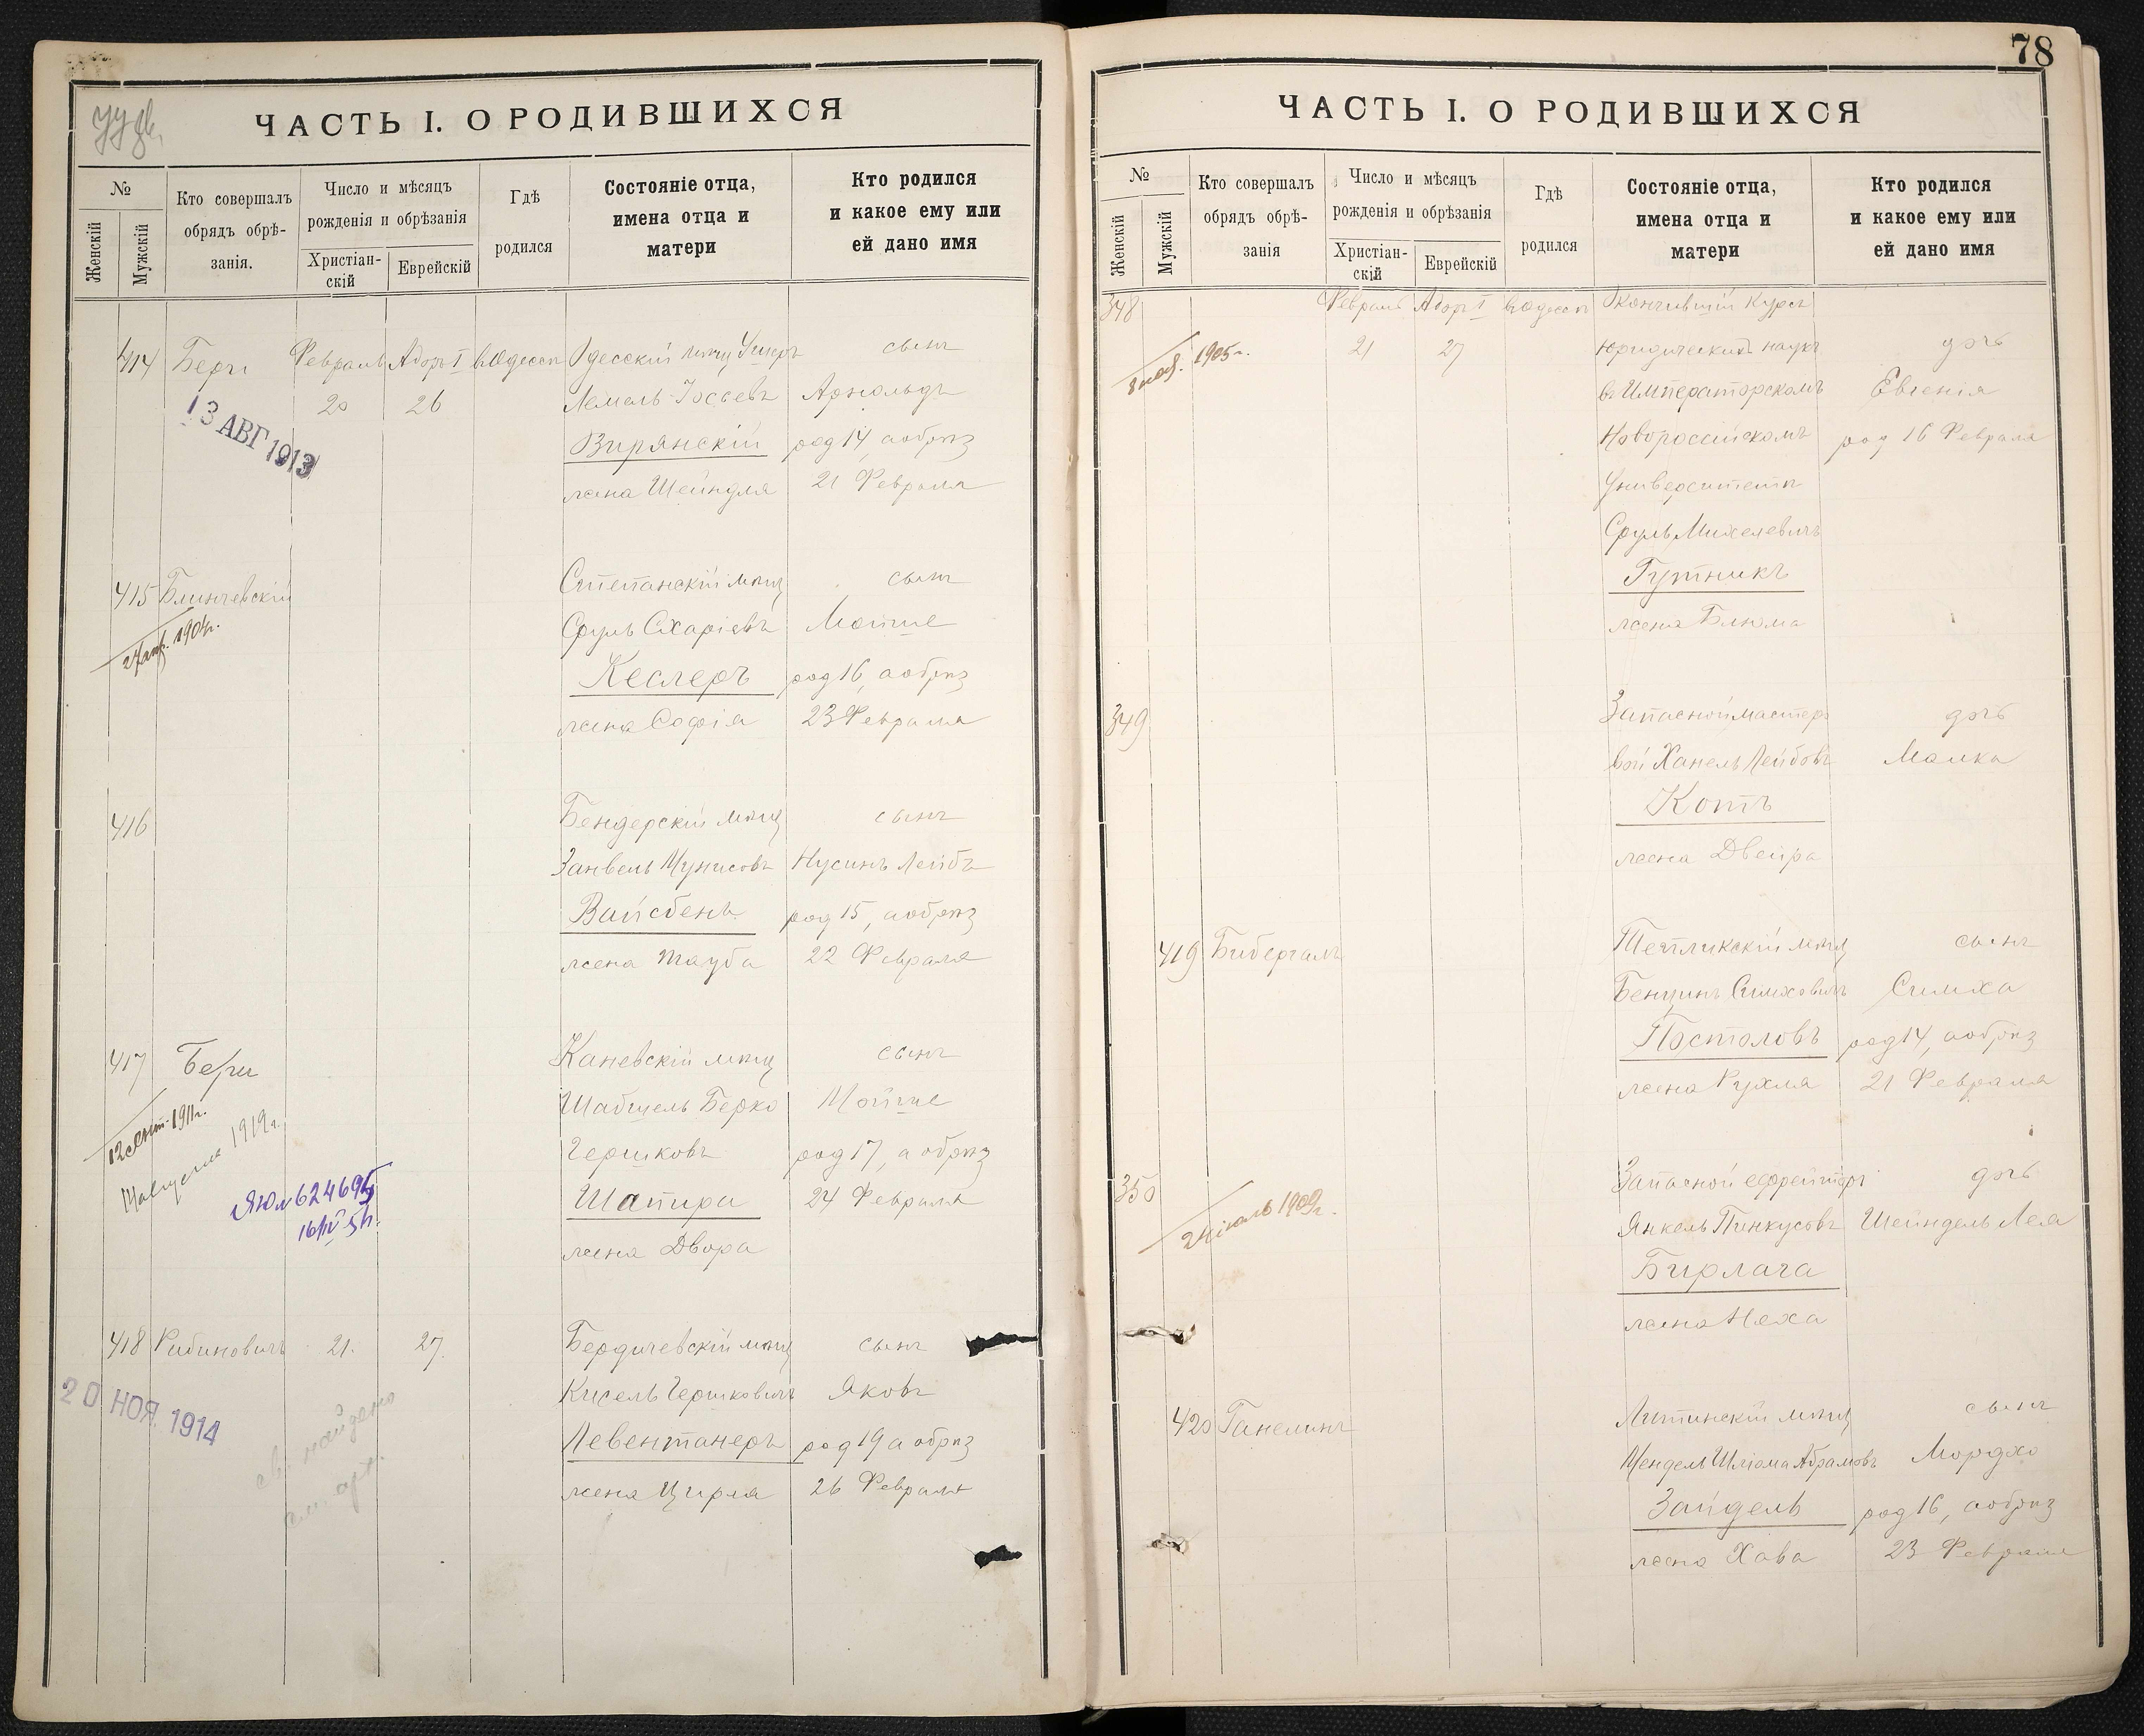 ЧАСТЬ I. О РОДИВШИХСЯ
№
Женскій
Мужскій
Кто совершалъ
обрядъ обрѣ-
занія.
Число и мѣсяцъ
рожденія и обрѣзанія
Христіан-
скій
Еврейскій
Гдѣ
родился
Состояніе отца,
имена отца и
матери
Кто родился
и какое ему или
ей дано имя
414 Февраль Адоръ I въ Одессѣ Одесскій сынъ
20 26 Арнольдъ
13 АВГ 1913
Вирянскій род 14, а обрѣз
жена Шейндля 21 Февраля
415 Блинчевскій Степанскій мѣщ сынъ
Сруль Мойше
1904г.
Кеслеръ род 16, а обрѣз
жена Софія 23 Февраля
416 Бендерскій мѣщ сынъ
Занвель Мунисовъ Нусинъ Лейбъ
Вайсбенъ род 15, а обрѣз
жена Тауба 22 Февраля
417 Каневскій мѣщ сынъ
Шабшель Берко Мойше
12 сент. 1911г.
14 августа 1919г.
Гершковъ род 17, а обрѣз
Шапира 24 Февраля
жена Двора
418 Рабиновичъ 21. 27. Бердичевскій мѣщ сынъ
Кисель Гершковичъ Яковъ
20 НОЯ. 1914
Левентанеръ род 19 а обрѣз
жена Цирля 26 Февраля
78
ЧАСТЬ I. О РОДИВШИХСЯ
№
Женскій
Мужскій
Кто совершалъ
обрядъ обрѣ-
занія
Число и мѣсяцъ
рожденія и обрѣзанія
Христіан-
скій
Еврейскій
Гдѣ
родился
Состояніе отца,
имена отца и
матери
Кто родился
и какое ему или
ей дано имя
348 Февраль Адоръ I въ Одессѣ Окончившій курсъ
1905г. 21 27 юридическихъ наукъ дочь
въ Императорскомъ Евгенія
Новороссійскомъ род 16 Февраля
Университетѣ
Сруль Михелевичъ
Гутникъ
жена Блюма
349 Запасной мастеро дочь
вой Ханель Лейбовъ Малка
Котъ
жена Двейра
419 Бибергалъ Тепликскій мѣщ сынъ
Бенціонъ Симховичъ Симха
Постоловъ род 14, а обрѣз
жена Рухля 21 Февраля
350 Запасной ефрейторъ дочь
1909г. Янкель Пинкусовъ Шейндель Лея
Бирлача
жена Неха
420 Ганелинъ Литинскій мѣщ сынъ
Мендель Шліома Абрамовъ Мордко
Зайдель род 16, а обрѣз
жена Хава 23 Февраля